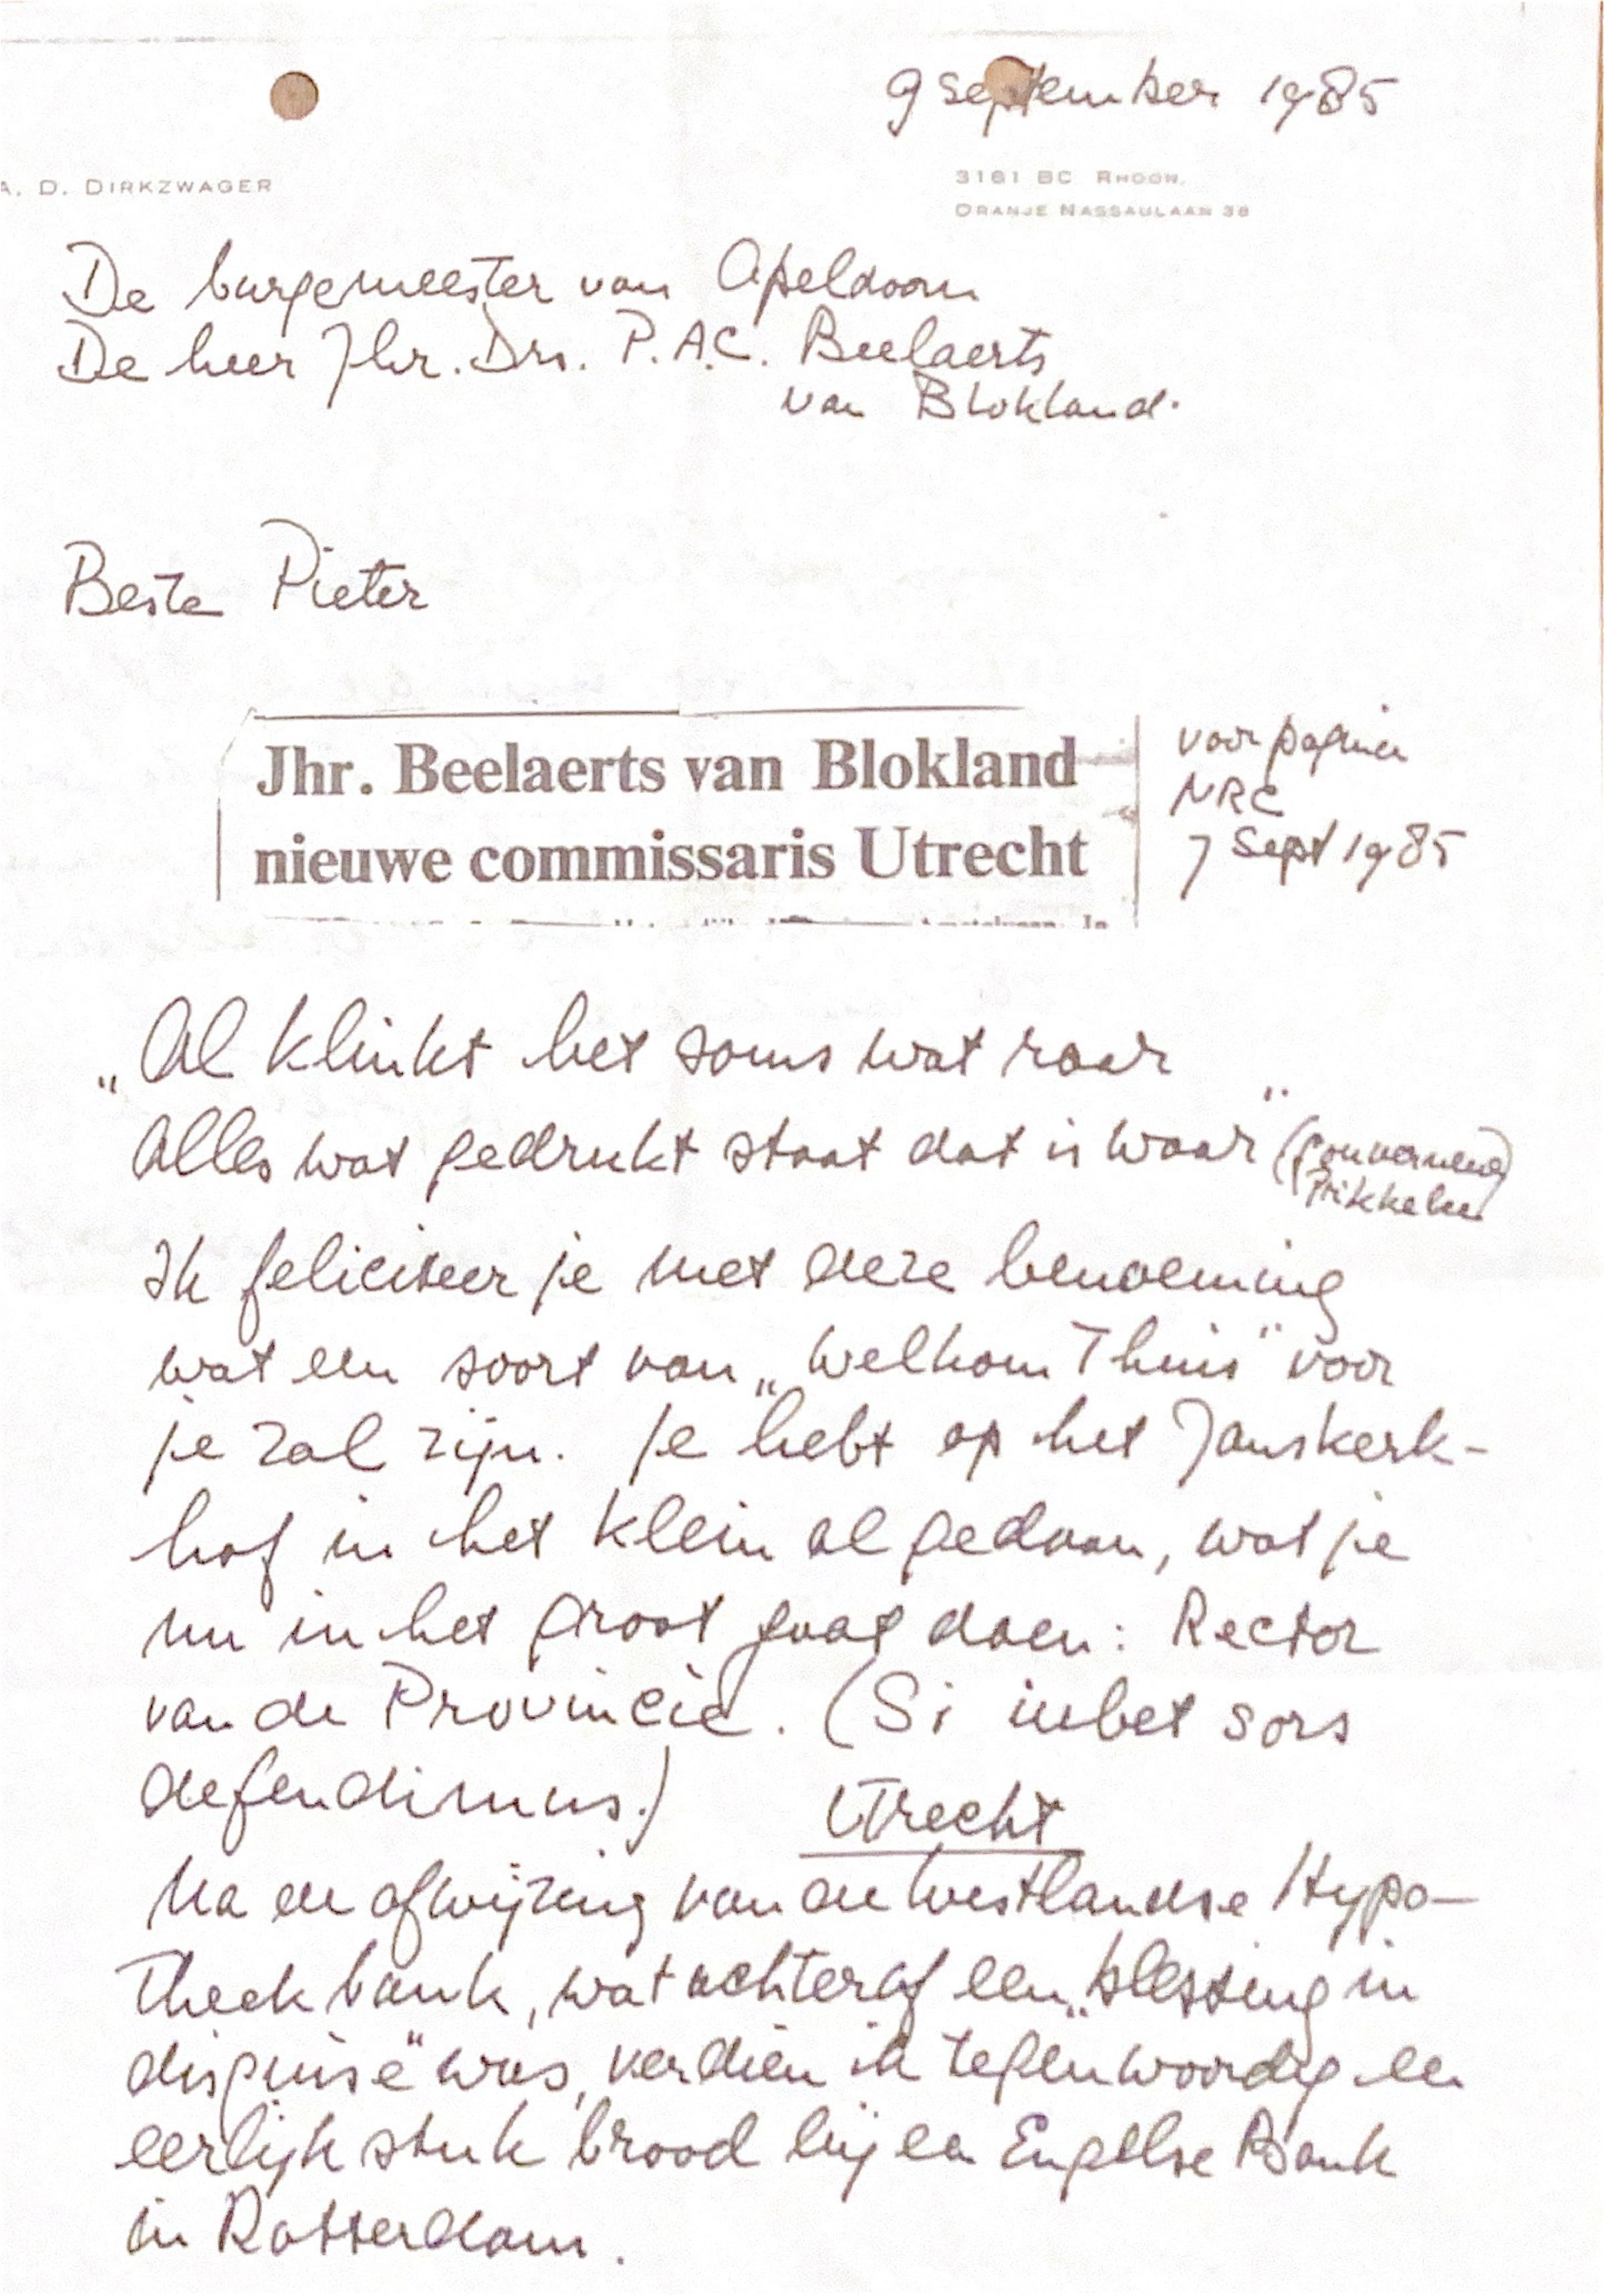 9 september 1985
A. D. DIRKZWAGER
3161 BC RHOON.
ORANJE NASSAULAAN 38
De burgemeester van Apeldoorn
De heer Jhr. Drs. P.A.C. Beelaerts
van Blokland.
Beste Pieter
Jhr. Beelaerts van Blokland
nieuwe commissaris Utrecht
voorpagina
NRC
7 Sept 1985
„Al klinkt het soms wat raar
Alles wat gedrukt staat dat is waar" (
Prikkebeen)
Ik feliciteer je met deze benoeming
wat een soort van „Welkom Thuis" voor
je zal zijn. Je hebt op het Janskerk-
hof in het klein al gedaan, wat je
nu in het groot gaat doen: Rector
van de Provincie. (Si iubet sors
defendimus.)
Utrecht
Na de afwijzing van de Westlandse Hypo-
theekbank, wat achteraf een „blessing in
disguise" was, verdien ik tegenwoordig een
eerlijk stuk brood bij een Engelse Bank
in Rotterdam.